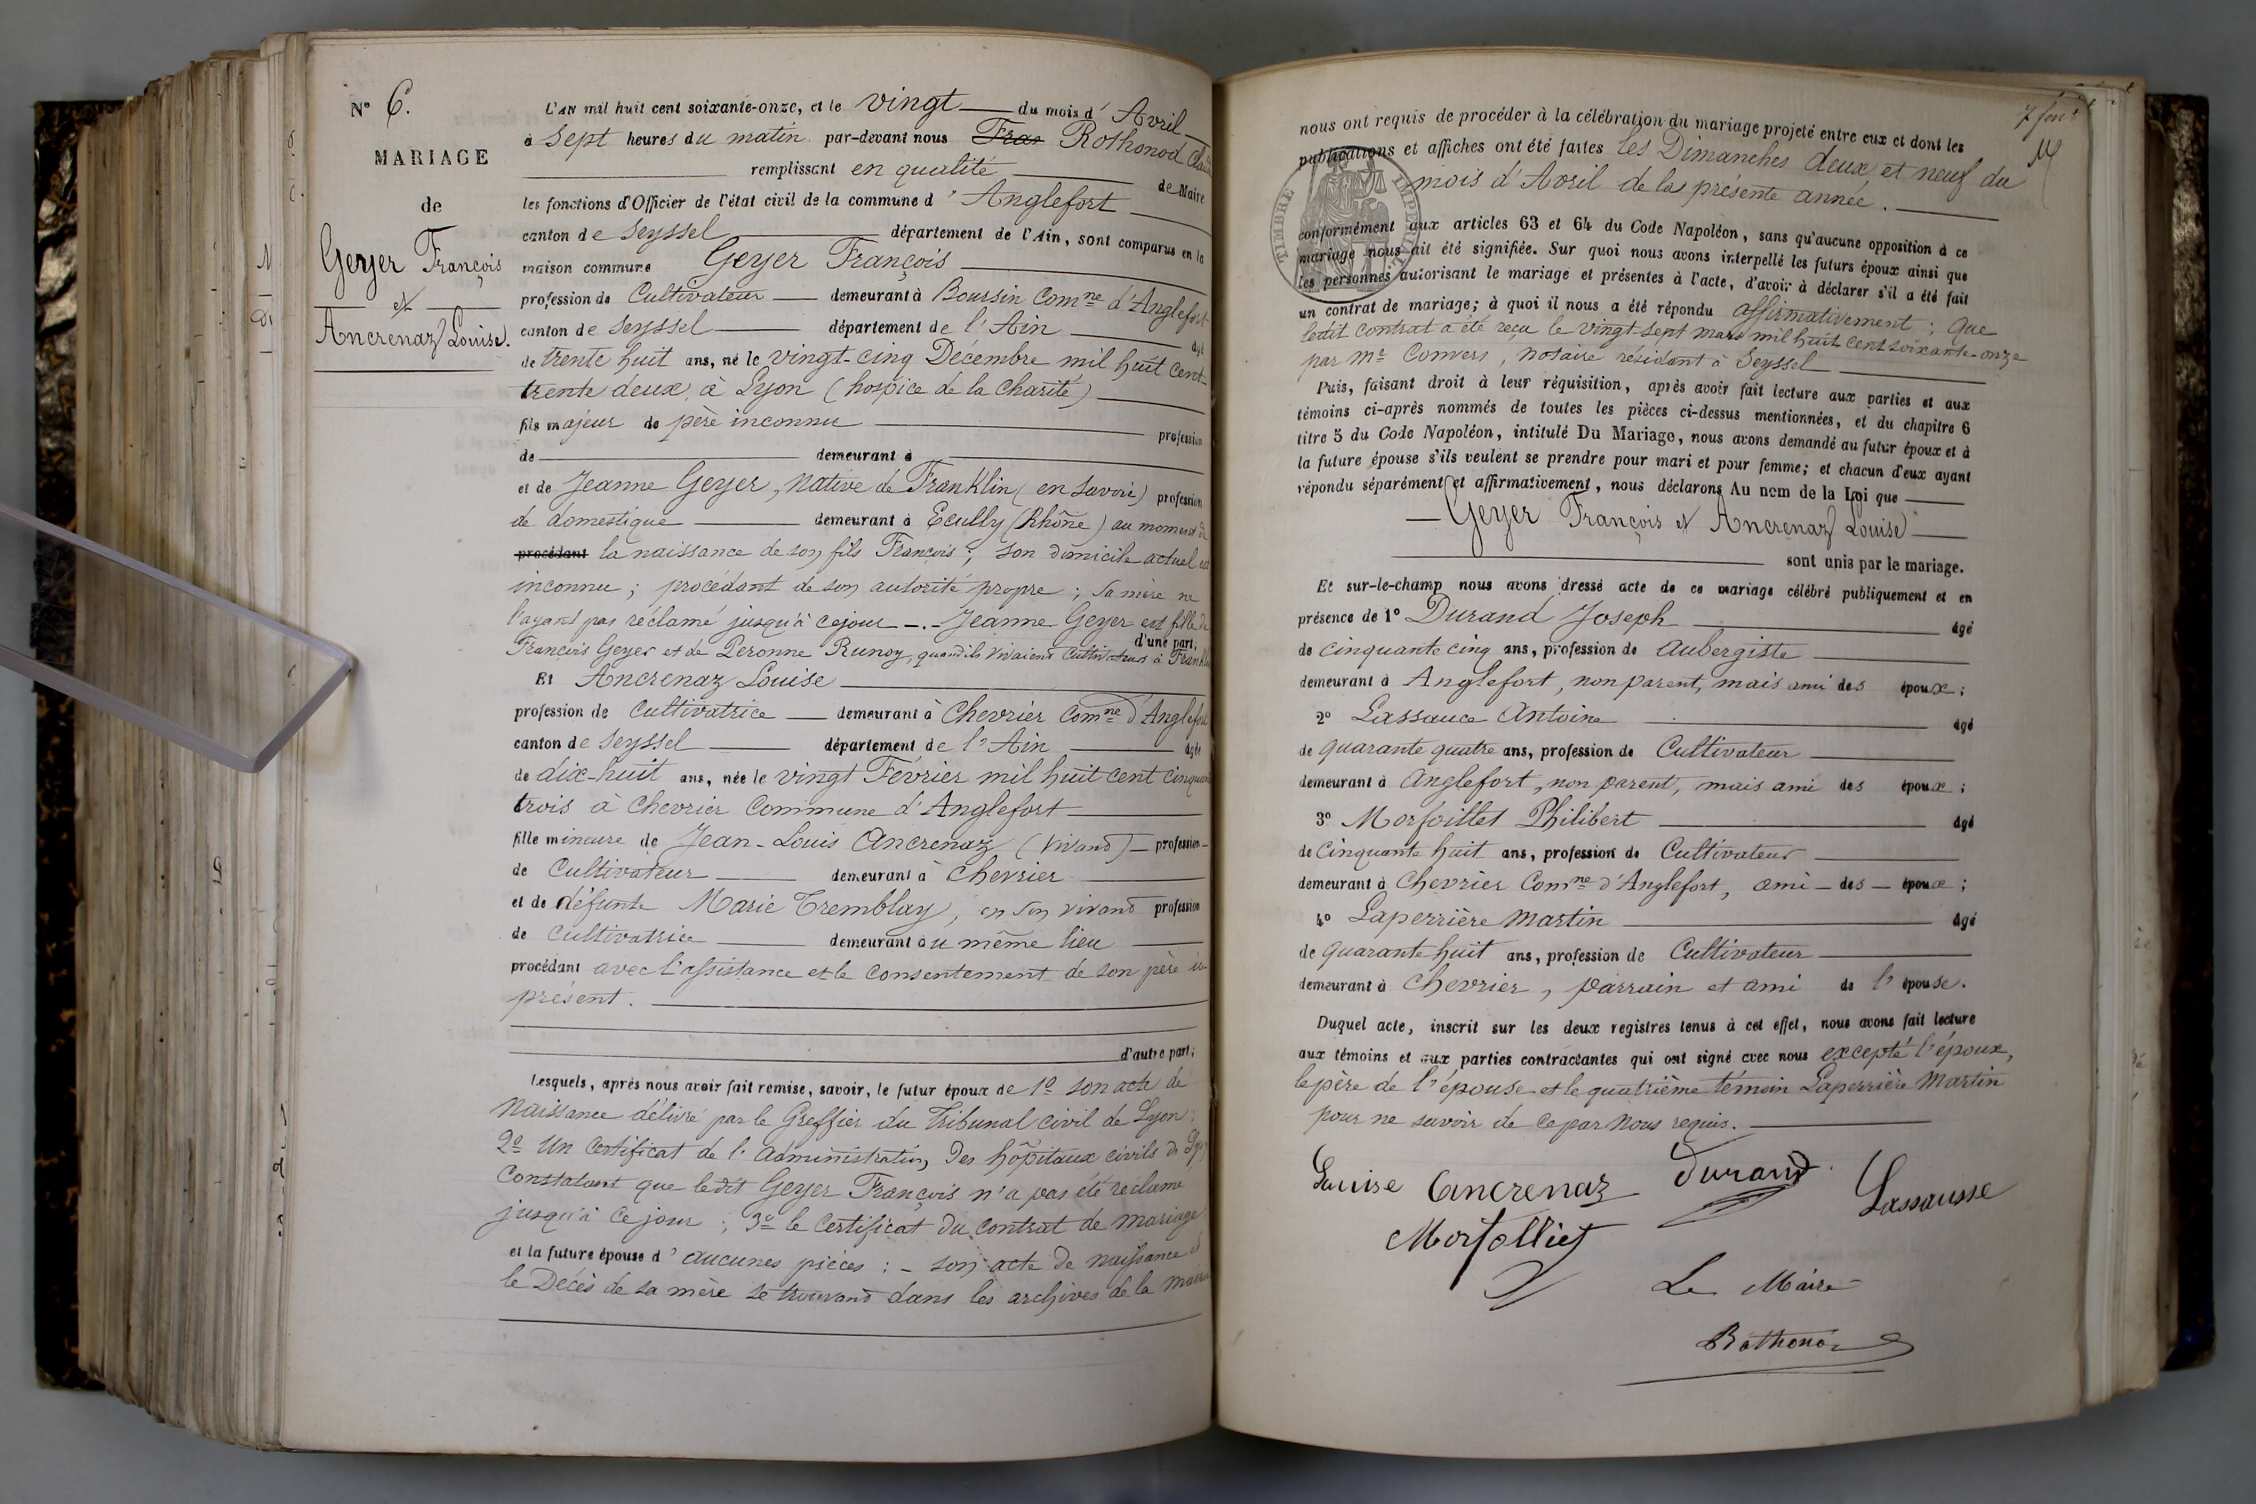 N° 6.
MARIAGE
de
Geyer François
et
Ancrenaz Louise.
L'AN mil huit cent soixante-onze, et le vingt du mois d'Avril
à sept heures du matin par-devant nous Fras Rothonod
remplissant en qualité de Maire
les fonctions d'Officier de l'état civil de la commune d'Anglefort
canton de Seyssel département de l'Ain, sont comparus en la
maison commune Geyer François
profession de Cultivateur demeurant à Boursin Comne d'Anglefort
canton de Seyssel département de l'Ain âgé
de trente huit ans, né le vingt-cinq Décembre mil huit cent
trente deux, à Lyon (hospice de la Charité)
fils majeur de père inconnu profession
de demeurant à
et de Jeanne Geyer, native de Franklin (en Savoie) profession
de domestique demeurant à Ecully (Rhône) au moment de
procédant la naissance de son fils François ; son domicile actuel est
inconnu ; procédant de son autorité propre ; Sa mère ne
l'ayant pas réclamé jusqu'à ce jour -.- Jeanne Geyer est fille de
d'une part;
François Geyer et de Peronne Runoz, quand ils vivaient cultivateurs à Franklin
Et Ancrenaz Louise
profession de Cultivatrice demeurant à Chevrier Comne d'Anglefort
canton de Seyssel département de l'Ain âgée
de dix-huit ans, née le vingt Février mil huit cent cinquante
trois à Chevrier Commune d'Anglefort
fille mineure de Jean-Louis Ancrenaz (vivant) profession
de Cultivateur demeurant à Chevrier
et de défunte Marie Tremblay, en son vivant profession
de Cultivatrice demeurant au même lieu
procédant avec l'assistance et le consentement de son père ici
présent.
d'autre part;
Lesquels, après nous avoir fait remise, savoir, le futur époux de 1° son acte de
Naissance délivré par le Greffier du Tribunal civil de Lyon ;
2° Un Certificat de l'administration des hôpitaux civils de Lyon
Constatant que ledit Geyer François n'a pas été réclamé
jusqu'à ce jour ; 3° le Certificat du Contrat de mariage
et la future épouse d'aucunes pièces : - son acte de naissance et
le Décès de sa mère se trouvant dans les archives de la mairie
nous ont requis de procéder à la célébration du mariage projeté entre eux et dont les
publications et affiches ont été faites les Dimanches deux et neuf du
mois d'Avril de la présente année.
TIMBRE IMPÉRIAL
conformément aux articles 63 et 64 du Code Napoléon, sans qu'aucune opposition à ce
mariage nous ait été signifiée. Sur quoi nous avons interpellé les futurs époux ainsi que
les personnes autorisant le mariage et présentes à l'acte, d'avoir à déclarer s'il a été fait
un contrat de mariage; à quoi il nous a été répondu affirmativement ; que
ledit contrat a été reçu le vingt-sept mars mil huit cent soixante-onze
par Me Convers, notaire résidant à Seyssel
Puis, faisant droit à leur réquisition, après avoir fait lecture aux parties et aux
témoins ci-après nommés de toutes les pièces ci-dessus mentionnées, et du chapitre 6
titre 5 du Code Napoléon, intitulé Du Mariage, nous avons demandé au futur époux et à
la future épouse s'ils veulent se prendre pour mari et pour femme; et chacun d'eux ayant
répondu séparément et affirmativement, nous déclarons Au nom de la Loi que
Geyer François et Ancrenaz Louise
sont unis par le mariage.
Et sur-le-champ nous avons dressé acte de ce mariage célébré publiquement et en
présence de 1° Durand Joseph âgé
de cinquante cinq ans, profession de Aubergiste
demeurant à Anglefort, non parent, mais ami des époux ;
2° Lassauce Antoine âgé
de quarante quatre ans, profession de Cultivateur
demeurant à Anglefort, non parent, mais ami des époux ;
3° Morfoillet Philibert âgé
de Cinquante huit ans, profession de Cultivateur
demeurant à Chevrier Comne d'Anglefort, ami des époux ;
4° Laperrière Martin âgé
de quarante huit ans, profession de Cultivateur
demeurant à Chevrier, parrain et ami de l'épouse.
Duquel acte, inscrit sur les deux registres tenus à cet effet, nous avons fait lecture
aux témoins et aux parties contractantes qui ont signé avec nous excepté l'époux,
le père de l'épouse et le quatrième témoin Laperrière Martin
pour ne savoir de ce par nous requis.
Louise Ancrenaz Durand Lassausse
Morfolliet
Le Maire
Rothonod